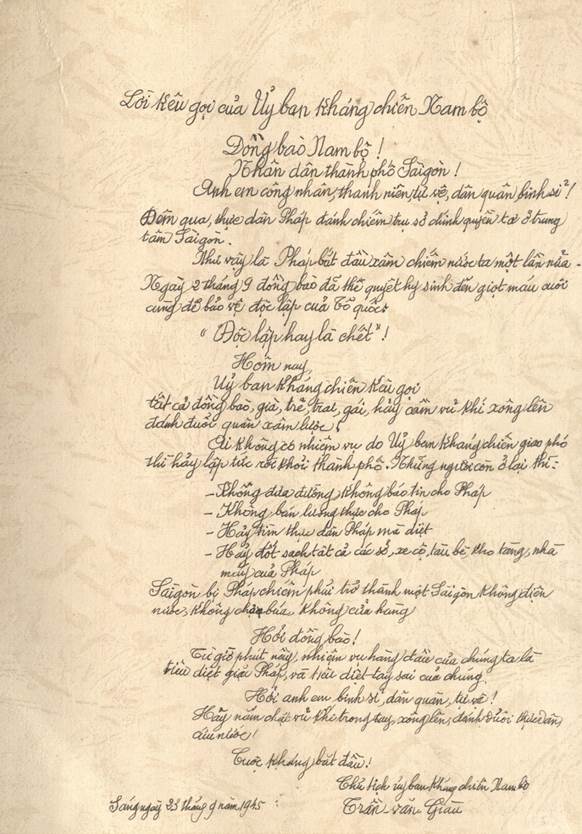 Lời kêu gọi của Ủy ban Kháng chiến Nam bộ
Đồng bào Nam bộ !
Nhân dân thành phố Saigon !
Anh em công nhân, thanh niên, tự vệ, dân quân, binh sĩ !
Đêm qua, thực dân Pháp đánh chiếm trụ sở chính quyền ta ở trung
tâm Saigon.
Như vậy là Pháp bắt đầu xâm chiếm nước ta một lần nữa -
Ngày 2 tháng 9 đồng bào đã thề quyết hy sinh đến giọt máu cuối
cùng để bảo vệ độc lập của Tổ quốc:
" Độc lập hay là chết" !
Hôm nay,
Uỷ ban Kháng chiến kêu gọi
tất cả đồng bào, già, trẻ, trai, gái, hảy cầm vũ khí xông lên
đánh đuổi quân xâm lược !
Ai không có nhiệm vụ do Uỷ ban Kháng chiến giao phó
thì hảy lập tức rời khỏi thành phố. Những người còn ở lại thì:
- Không đưa đường không báo tin cho Pháp
- Không bán lương thực cho Pháp
- Hảy tìm thực dân Pháp mà diệt
- Hảy đốt sạch tất cả các sở, xe cộ, tàu bè, kho tàng, nhà
máy của Pháp
Saigon bị Pháp chiếm phải trở thành một Saigon không điện
nước, không chợ búa không cửa hàng
Hỡi đồng bào!
Từ giờ phút nầy, nhiệm vụ hàng đầu của chúng ta là
tiêu diệt giặc Pháp, và tiêu diệt tay sai của chúng.
Hỡi anh em binh sĩ, dân quân, tự vệ !
Hãy nắm chặt vũ khí trong tay, xông lên, đánh đuổi thực dân,
cứu nước !
Cuộc kháng bắt đầu !
Chủ tịch ủy ban Kháng chiến Nam bộ
Sáng ngày 23 tháng 9 năm 1945
Trần văn Giàu